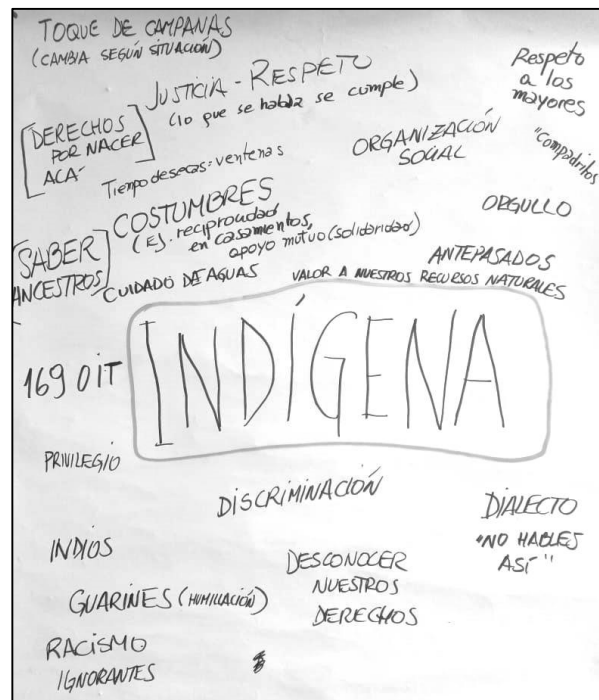 TOQUE DE CAMPANAS
(CAMBIA SEGÚN SITUACIÓN)
JUSTICIA - RESPETO
(lo que se habla se cumple)
Respeto
a los
mayores
[DERECHOS
POR NACER
ACÁ]
ORGANIZACIÓN
SOCIAL
"Compadritos
Tiempo de secas = venteñas
COSTUMBRES
(Ej. reciprocidad
en casamientos,
apoyo mutuo (solidaridad)
ORGULLO
SABER]
ANCESTROS
CUIDADO DE AGUAS
ANTEPASADOS
VALOR A NUESTROS RECURSOS NATURALES
169 OIT
INDÍGENA
PRIVILEGIO
DISCRIMINACIÓN
DIALECTO
"NO HABLES
ASÍ"
INDIOS
DESCONOCER
NUESTROS
DERECHOS
GUARINES (HUMILLACIÓN)
RACISMO
IGNORANTES